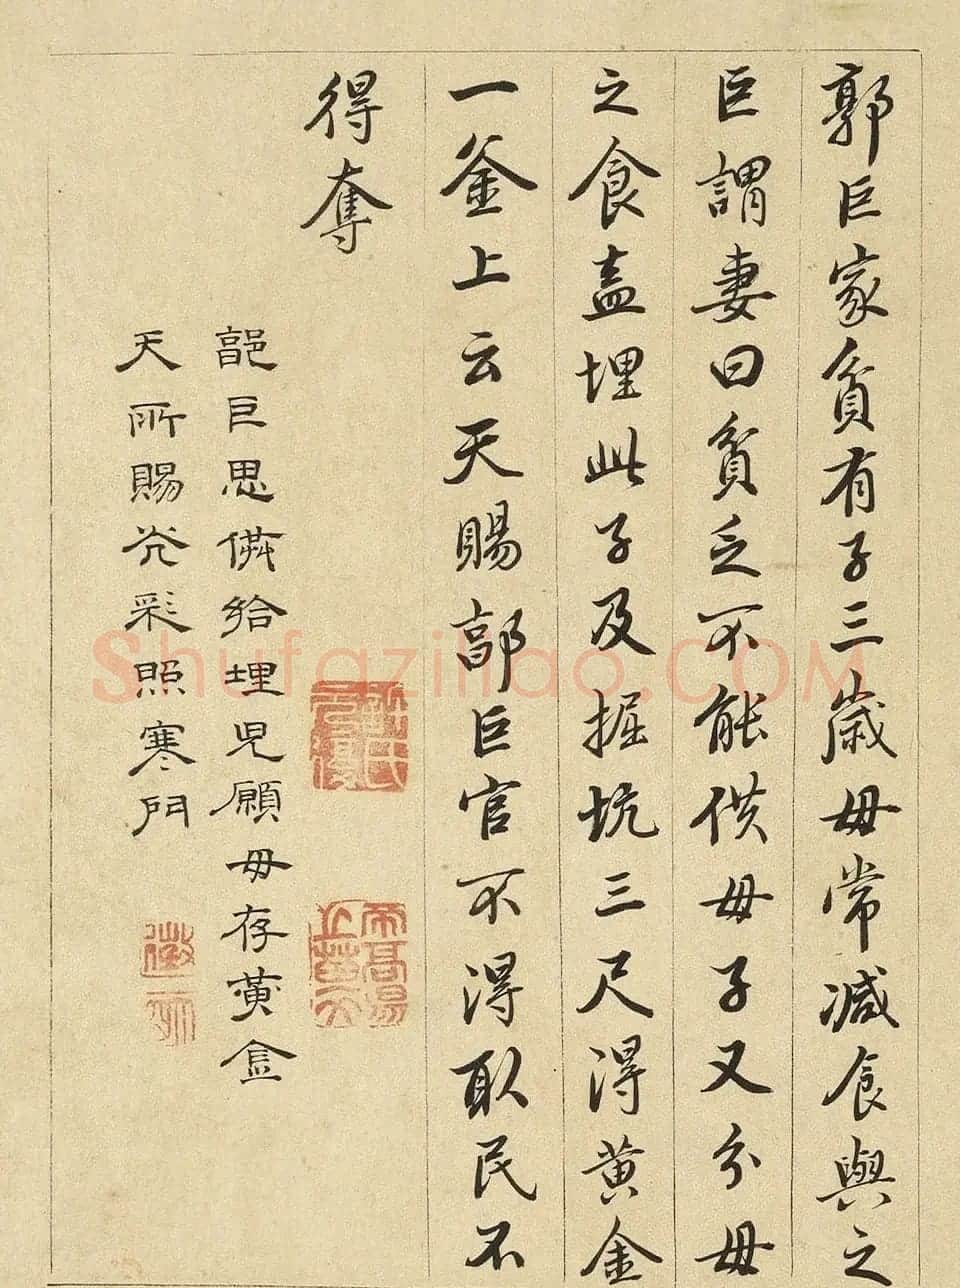 郭巨家貧有子三歲母常減食與之
巨謂妻曰貧乏不能供母子又分母
之食盍埋此子及掘坑三尺得黃金
一釜上云天賜郭巨官不得取民不
得奪
郭巨思供給埋児願母存黃金
天所賜光彩照寒門
Shufaziliao.COM